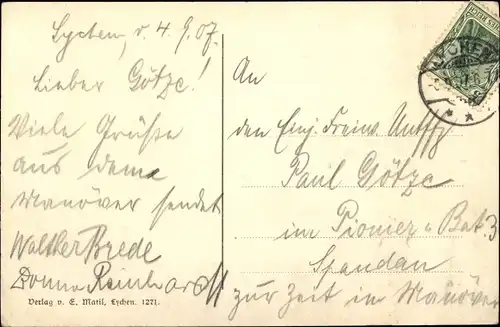 Lychen, d. 4.9.07.
Lieber Götze!
Viele Grüße
aus dem
Manöver sendet
Walther Brede
Reinhardt
Verlag v. E. Matil. Lychen. 1271.
An
den Einj. Freiw. Untffz
Paul Götze
im Pionier Bat. 3
Spandau
zur Zeit im Manöver
LYCHEN